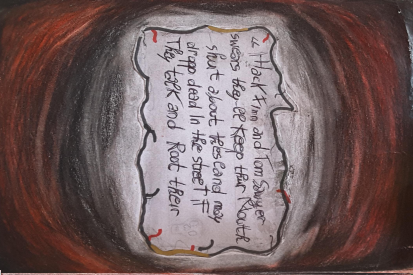 " Hack Finn and Tom Sawyer
swears they ee keep their Mouth
shut about thes and may
dropp dead In the street IF
They talk and Root their